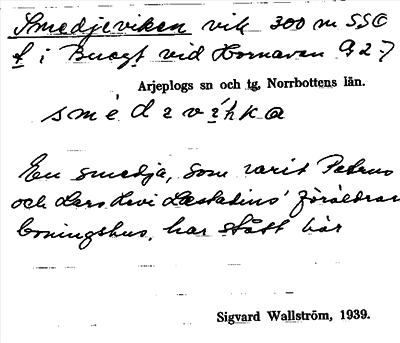 Smedjeviken vik 300 m SSO
f i Buogt vid Hornavan G2-7
Arjeplogs sn och tg, Norrbottens län.
smèdevíhka
En smedja, som varit Petrus
och Lars Levi Læstadius' föräldrars
boningshus, har stått här
Sigvard Wallström, 1939.